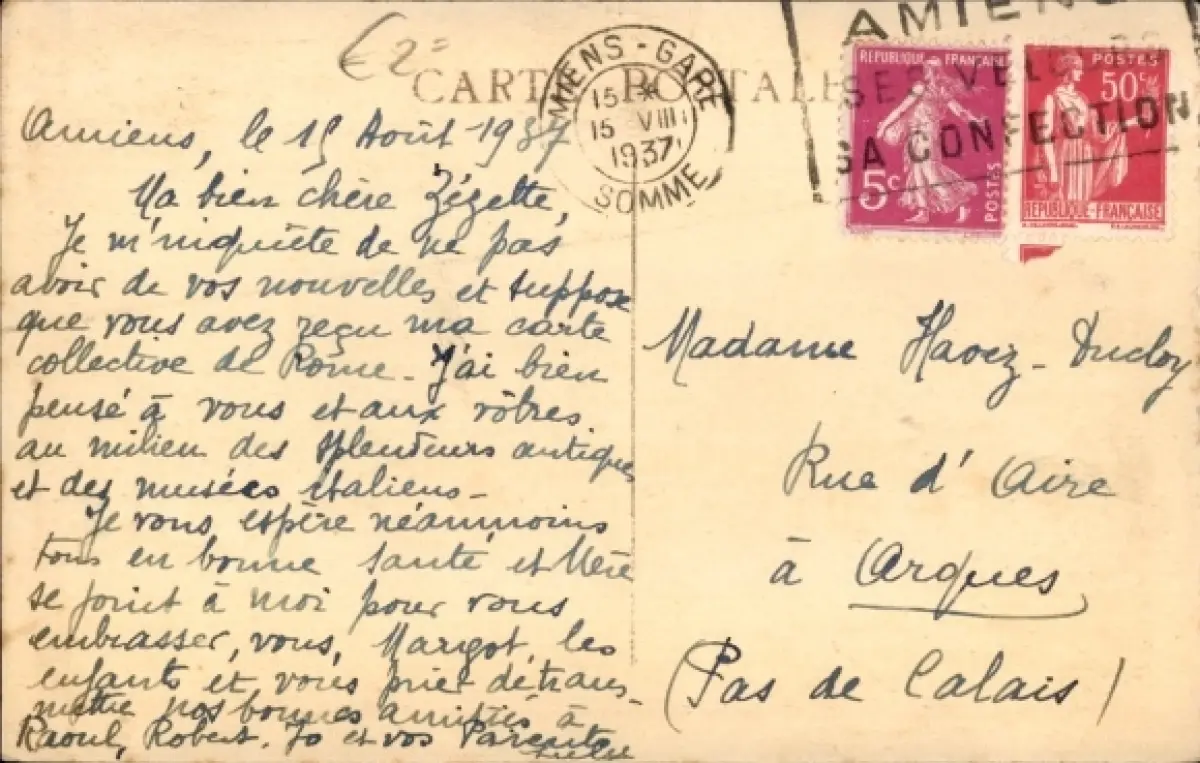 € 2=
CARTE POSTALE
AMIENS
SES VELOURS
SA CONFECTION
AMIENS - GARE
15 H
15 VIII
1937
SOMME
REPUBLIQUE FRANÇAISE
5c
POSTES
POSTES
50c
REPUBLIQUE-FRANÇAISE
Amiens, le 15 Août 1937
Ma bien chère Zézette,
Je m'inquiète de ne pas
avoir de vos nouvelles et suppose
que vous avez reçu ma carte
collective de Rome - J'ai bien
pensé à vous et aux vôtres
au milieu des splendeurs antiques
et des musées italiens -
Je vous espère néanmoins
tous en bonne santé et Mère
se joint à moi pour vous
embrasser, vous, Margot, les
enfants et vous prier de trans-
mettre nos bonnes amitiés à
Raoul, Robert, Jo et vos Parents
Madame Havez-Ducloy
Rue d'Aire
à Arques
(Pas de Calais)